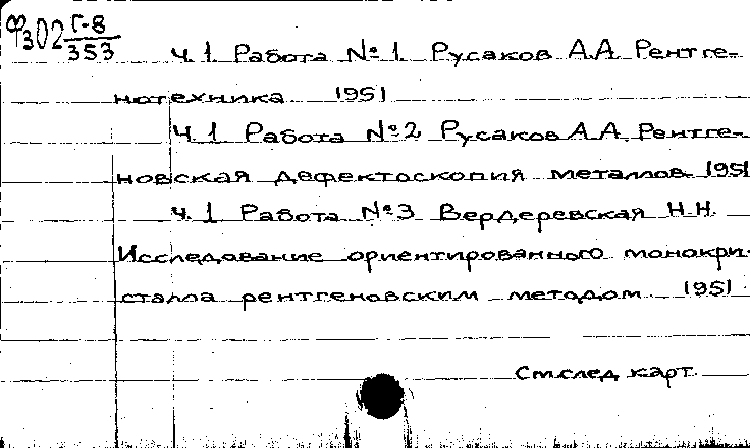 Фз02 Г-8
353
ч. 1 Работа №1. Русаков А.А. Рентге-
нотехника 1951
ч. 1 Работа №2 Русаков А.А. Рентге-
новская дефектоскопия металлов 1951
ч. 1 Работа №3 Вердеревская Н.Н.
Исследование ориентированного монокри-
сталла рентгеновским методом. 1951
См.след карт.